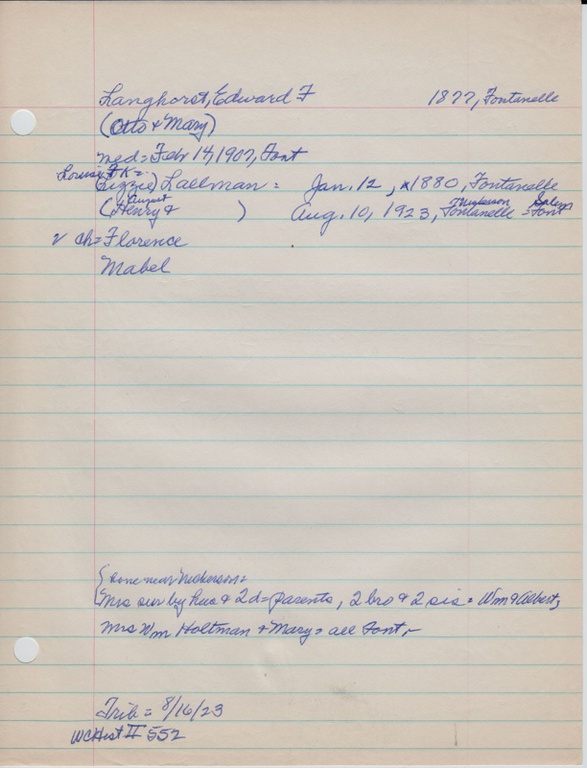 Langhorst, Edward F 1877, Fontanelle
(Otto & Mary)
med = Febr 14, 1907, Font
Louise F K =
(Lizzie) Lallman = Jan. 12, *1880, Fontanelle
August Nickerson Salem
(Henry & ) Aug. 10, 1923, Fontanelle = Font
v ch = Florence
Mabel
{ done near Nickerson =
Mrs sur by hus & 2d = parents, 2 bro & 2 sis = Wm & Albert,
Mrs Wm Holtman & Mary = all Font,
Trib = 8/16/23
WCHist II 552